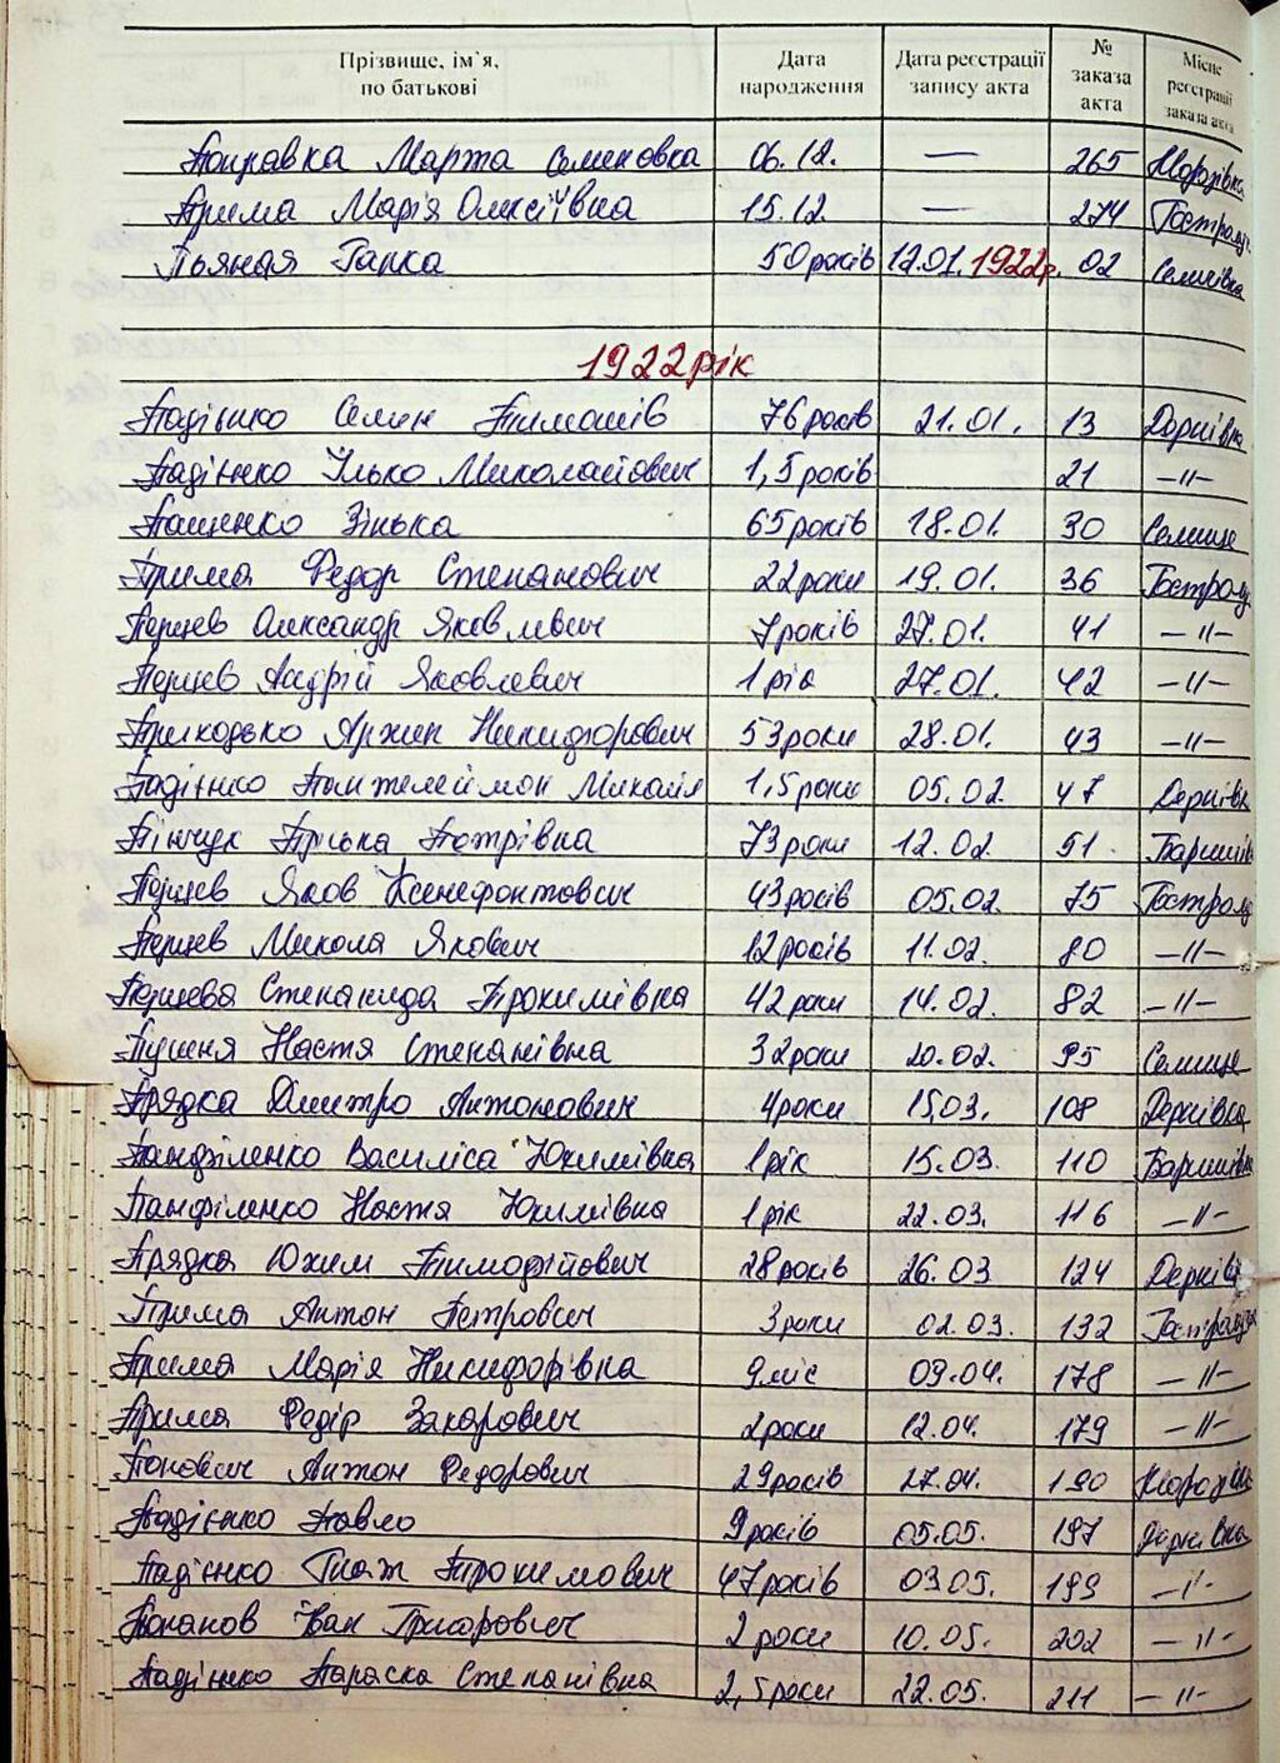 Прізвище, ім'я, по батькові Дата народження Дата реєстрації запису акта № заказа акта Місце реєстрації заказа акта
Поправка Марта Семеновка 06.12. — 265 Морозівка
Прима Марія Олексіївна 15.12. — 274 Гостролуч.
Пьяная Ганка 50 років 12.01.1922р. 02 Семенівка
1922 рік
Падієнко Семен Тимошів 76 років 21.01. 13 Дернівка
Падієнко Ілько Миколайович 1,5 років 21 —„—
Пащенко Зінька 65 років 18.01. 30 Селище
Прима Федор Степанович 22 роки 19.01. 36 Гостролу
Перцев Олександр Яковлевич 7 років 27.01. 41 —„—
Перцев Андрій Яковлевич 1 рік 27.01. 42 —„—
Приходько Архип Никифорович 53 роки 28.01. 43 —„—
Падієнко Пантелеймон Михайл 1,5 роки 05.02. 47 Дернівк
Пінчук Пріська Петрівна 73 роки 12.02. 51 Баришів
Перцев Яков Ксенефонтович 43 років 05.02. 75 Гостролу
Перцев Микола Якович 12 років 11.02. 80 —„—
Перцева Степанида Прохимівна 42 роки 14.02. 82 —„—
Пушня Настя Степанівна 32 роки 20.02. 95 Селище
Прядка Дмитро Антонович 4 роки 15.03. 108 Дернівка
Панфіленко Василіса Юхимівна 1 рік 15.03. 110 Баришівка
Панфіленко Настя Юхимівна 1 рік 22.03. 116 —„—
Прядка Юхим Тимофійович 28 років 26.03 124 Дернів
Прима Антон Петрович 3 роки 02.03. 132
Прима Марія Никифорівна 9 міс 09.04. 178 —„—
Прима Федір Захарович 2 роки 12.04. 179 —„—
Попович Антон Федорович 29 років 27.04. 190
Падієнко Павло 9 років 05.05. 197 Дернівка
Падієнко Прохимович 47 років 03.05. 199 —„—
Попанов Іван Григорович 2 роки 10.05. 202 —„—
Падієнко Параска Степанівна 2,5 роки 22.05. 211 —„—